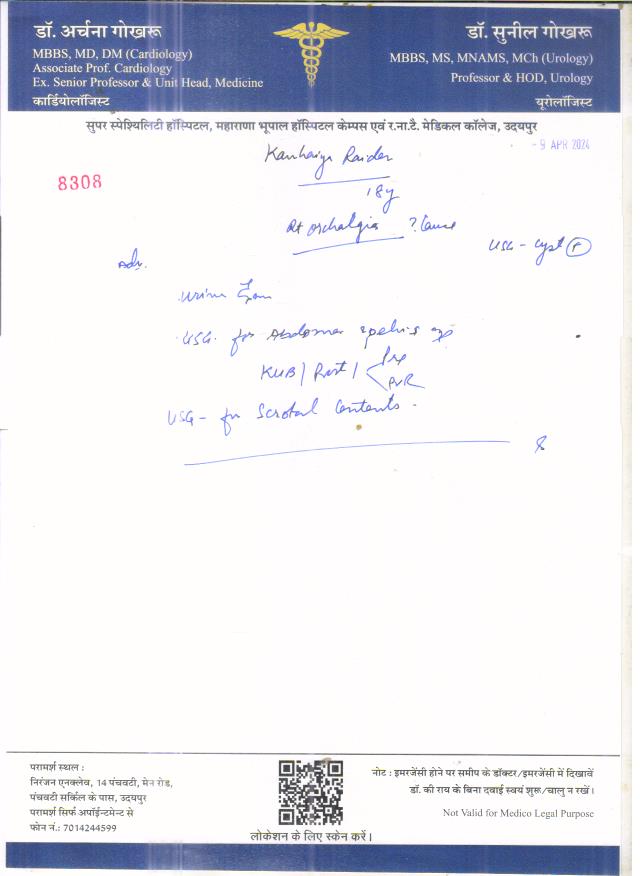 डॉ. अर्चना गोखरू
MBBS, MD, DM (Cardiology)
Associate Prof. Cardiology
Ex. Senior Professor & Unit Head, Medicine
कार्डियोलॉजिस्ट
डॉ. सुनील गोखरू
MBBS, MS, MNAMS, MCh (Urology)
Professor & HOD, Urology
यूरोलॉजिस्ट
सुपर स्पेश्यिलिटी हॉस्पिटल, महाराणा भूपाल हॉस्पिटल केम्पस एवं र.ना.टै. मेडिकल कॉलेज, उदयपुर
- 9 APR 2024
8308
18y
Rt orchalgia ? Cause
USG - Cyst
Adv.
Urine Exam
USG. for Abdomen
KUB / Prost / Pre
PVR
USG - for Scrotal Contents.
परामर्श स्थल :
निरंजन एनक्लेव, 14 पंचवटी, मेन रोड,
पंचवटी सर्किल के पास, उदयपुर
परामर्श सिर्फ अपॉईन्टमेन्ट से
फोन नं.: 7014244599
लोकेशन के लिए स्केन करें।
नोट : इमरजेंसी होने पर समीप के डॉक्टर/इमरजेंसी में दिखावें
डॉ. की राय के बिना दवाई स्वयं शुरू/चालु न रखें।
Not Valid for Medico Legal Purpose